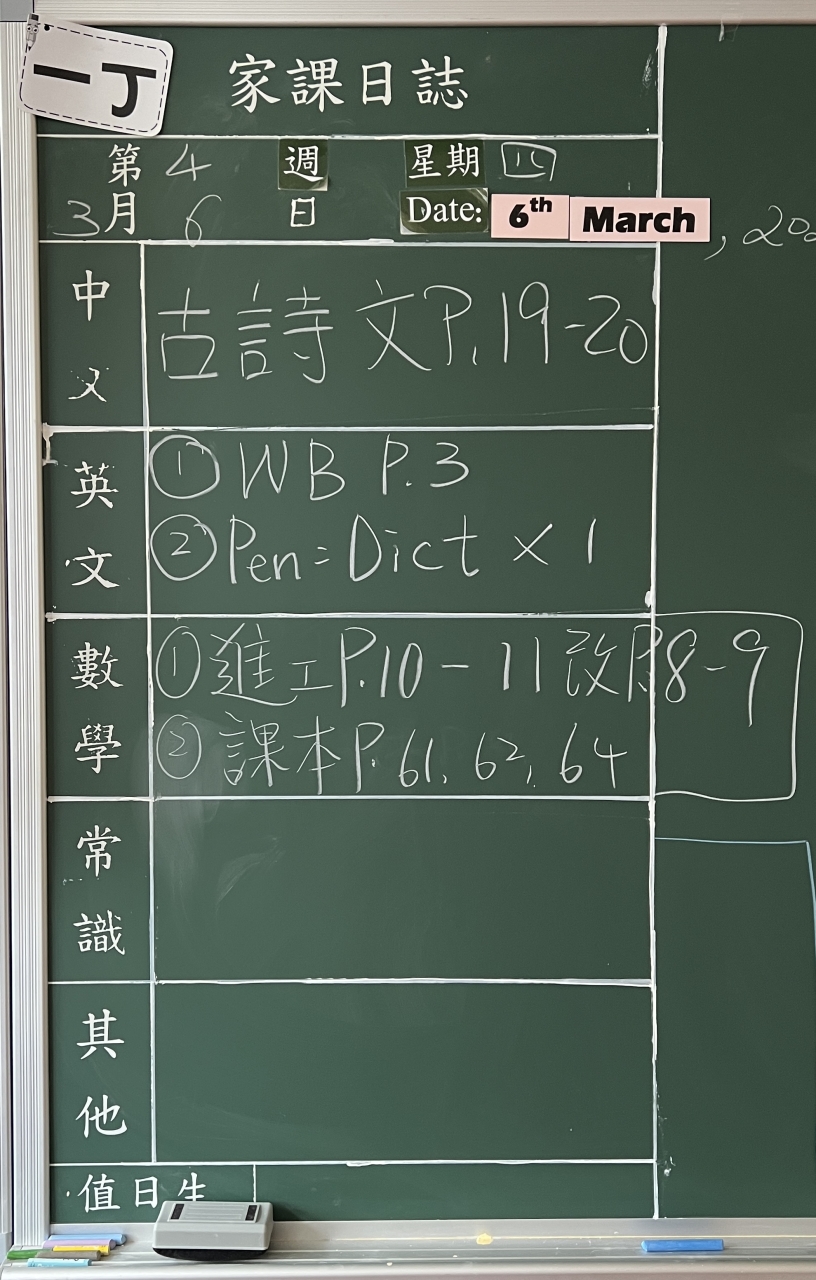 一丁
家課日誌
第 4 週 星期 四
3月 6 日 Date: 6th March, 20
中文 古詩文P.19-20
英文 ① WB P.3
② Pen = Dict × 1
數學 ① 進工P.10-11 改P.8-9
② 課本P.61, 62, 64
常識
其他
值日生